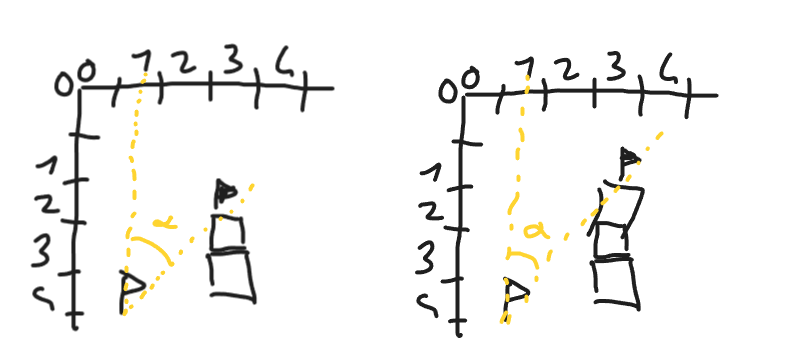 0 0 1 2 3 4
1
2
3
4
α
0 0 1 2 3 4
1
2
3
4
α